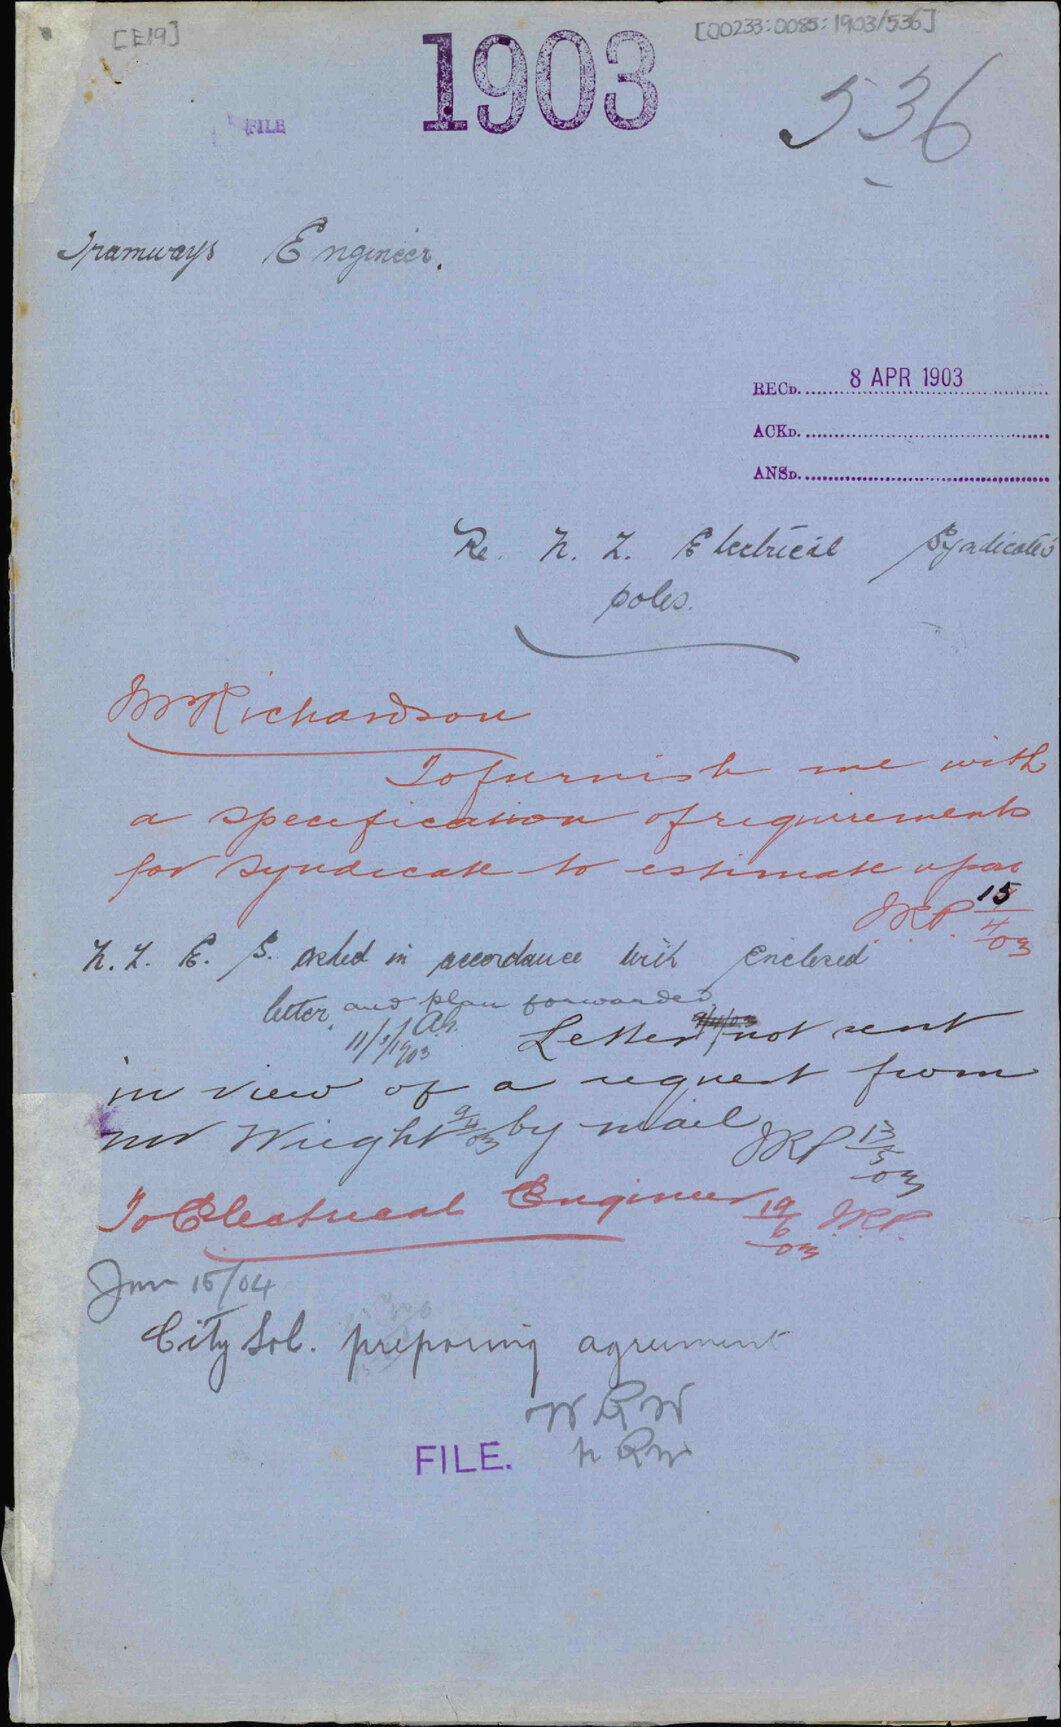 [E19]
[00233:0085:1903/536]
1903
536
FILE
Tramways Engineer.
RECD. 8 APR 1903
ACKD.
ANSD.
Re. N. Z. Electrical Syndicates
poles.
Mr Richardson
To furnish me with
a specification of requirements
for Syndicate to estimate upon
J.R.P. 15/4/03
N. Z. E. S. asked in accordance with enclosed
letter and plan forwarded
11/5/1903
Letter not sent
in view of a request from
Mr Wright 9/4/03 by mail JRP 13/5/03
To Electrical Engineer 19/6/03 J.R.P.
Jan 15/04
City Sol. preparing agreement
WRW
FILE.